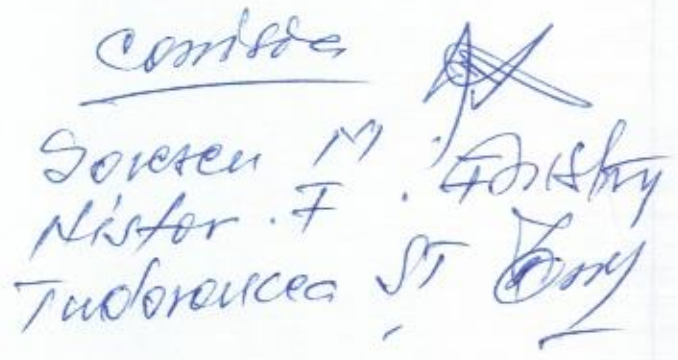 Comisia
Sorescu M.
Nistor. F.
Tudorancea ST